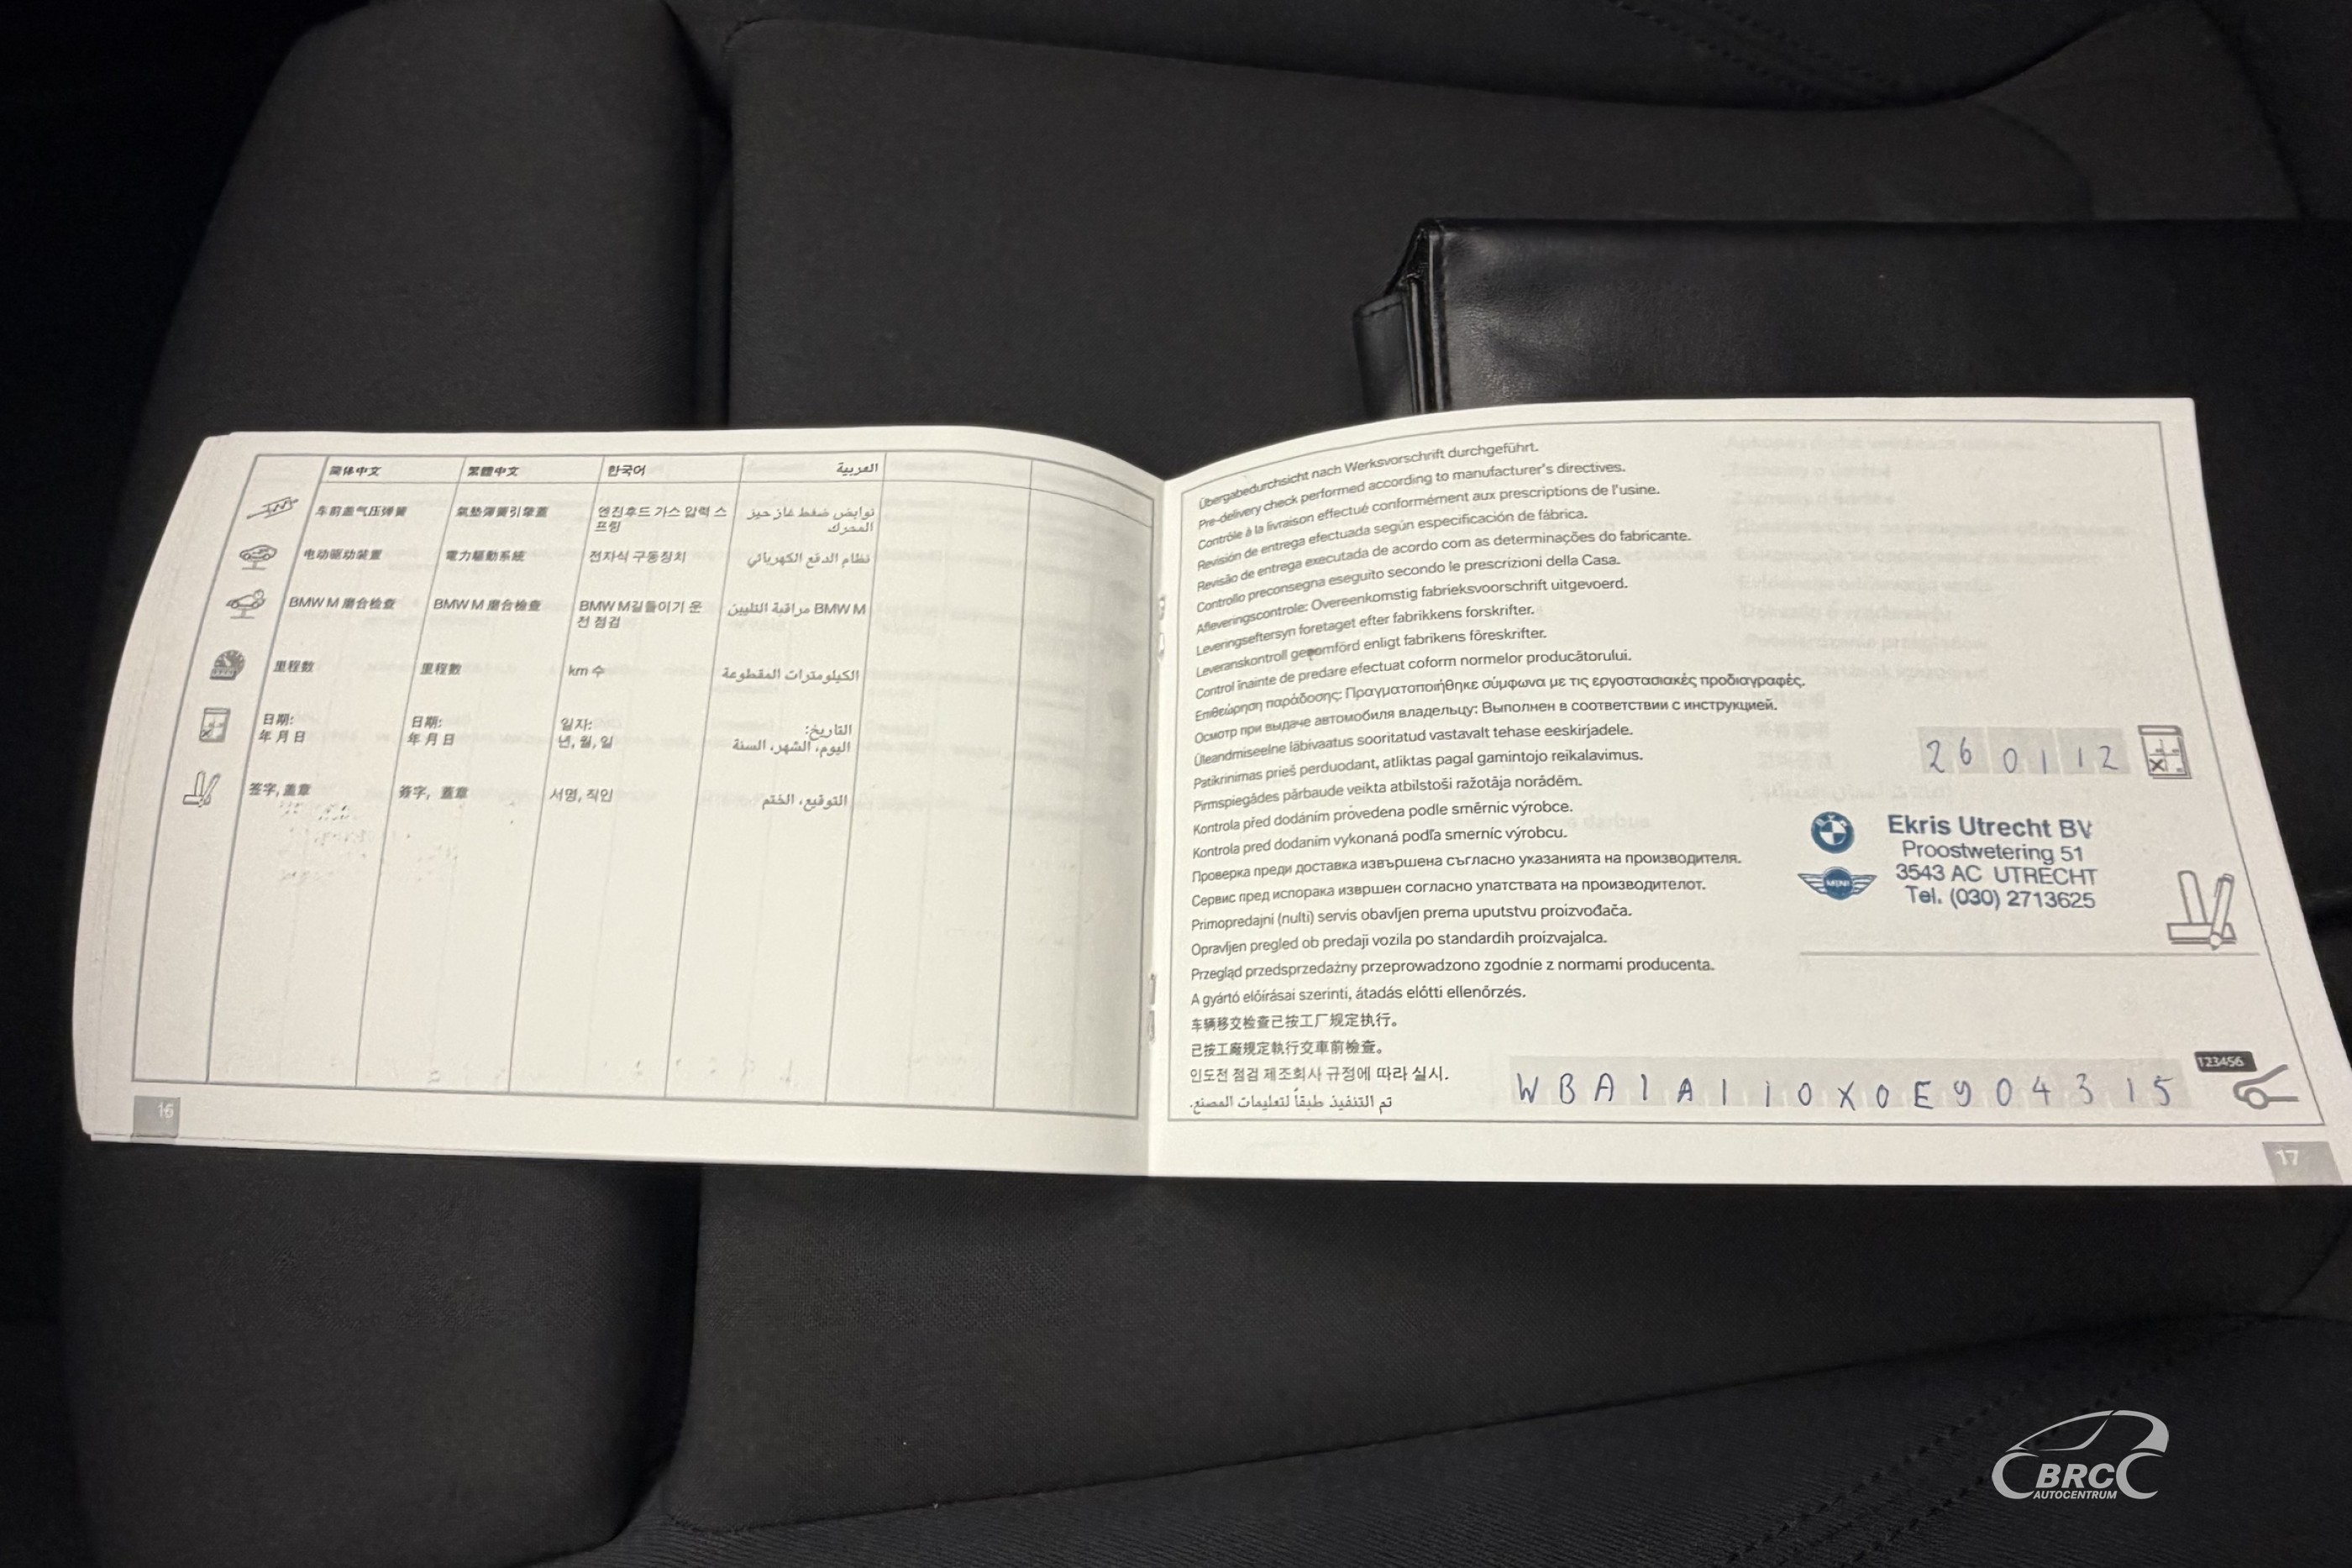 简体中文 繁體中文 한국어 العربية
车前盖气压弹簧 氣墊彈簧引擎蓋 엔진후드 가스 압력 스프링 نوابض ضغط غاز حيز المحرك
电动驱动装置 電力驅動系統 전자식 구동장치 نظام الدفع الكهربائي
BMW M 磨合检查 BMW M 磨合檢查 BMW M길들이기 운전 점검 BMW M مراقبة التليين
里程数 里程數 km 수 الكيلومترات المقطوعة
日期: 日期: 일자: التاريخ:
年 月 日 年 月 日 년, 월, 일 اليوم، الشهر، السنة
签字, 盖章 簽字, 蓋章 서명, 직인 التوقيع، الختم
16
Übergabedurchsicht nach Werksvorschrift durchgeführt.
Pre-delivery check performed according to manufacturer's directives.
Contrôle à la livraison effectué conformément aux prescriptions de l'usine.
Revisión de entrega efectuada según especificación de fábrica.
Revisão de entrega executada de acordo com as determinações do fabricante.
Controllo preconsegna eseguito secondo le prescrizioni della Casa.
Afleveringscontrole: Overeenkomstig fabrieksvoorschrift uitgevoerd.
Leveringseftersyn foretaget efter fabrikkens forskrifter.
Leveranskontroll genomförd enligt fabrikens föreskrifter.
Control înainte de predare efectuat coform normelor producătorului.
Επιθεώρηση παράδοσης: Πραγματοποιήθηκε σύμφωνα με τις εργοστασιακές προδιαγραφές.
Осмотр при выдаче автомобиля владельцу: Выполнен в соответствии с инструкцией.
Üleandmiseelne läbivaatus sooritatud vastavalt tehase eeskirjadele.
Patikrinimas prieš perduodant, atliktas pagal gamintojo reikalavimus.
Pirmspiegādes pārbaude veikta atbilstoši ražotāja norādēm.
Kontrola před dodáním provedena podle směrnic výrobce.
Kontrola pred dodaním vykonaná podľa smerníc výrobcu.
Проверка преди доставка извършена съгласно указанията на производителя.
Сервис пред испорака извршен согласно упатствата на производителот.
Primopredajni (nulti) servis obavljen prema uputstvu proizvođača.
Opravljen pregled ob predaji vozila po standardih proizvajalca.
Przegląd przedsprzedażny przeprowadzono zgodnie z normami producenta.
A gyártó előírásai szerinti, átadás előtti ellenőrzés.
车辆移交检查已按工厂规定执行。
已按工廠規定執行交車前檢查。
인도전 점검 제조회사 규정에 따라 실시.
تم التنفيذ طبقاً لتعليمات المصنع.
26 01 12
Ekris Utrecht BV
MINI
Proostwetering 51
3543 AC UTRECHT
Tel. (030) 2713625
123456
WBA1A110X0E904315
17
BRC
AUTOCENTRUM